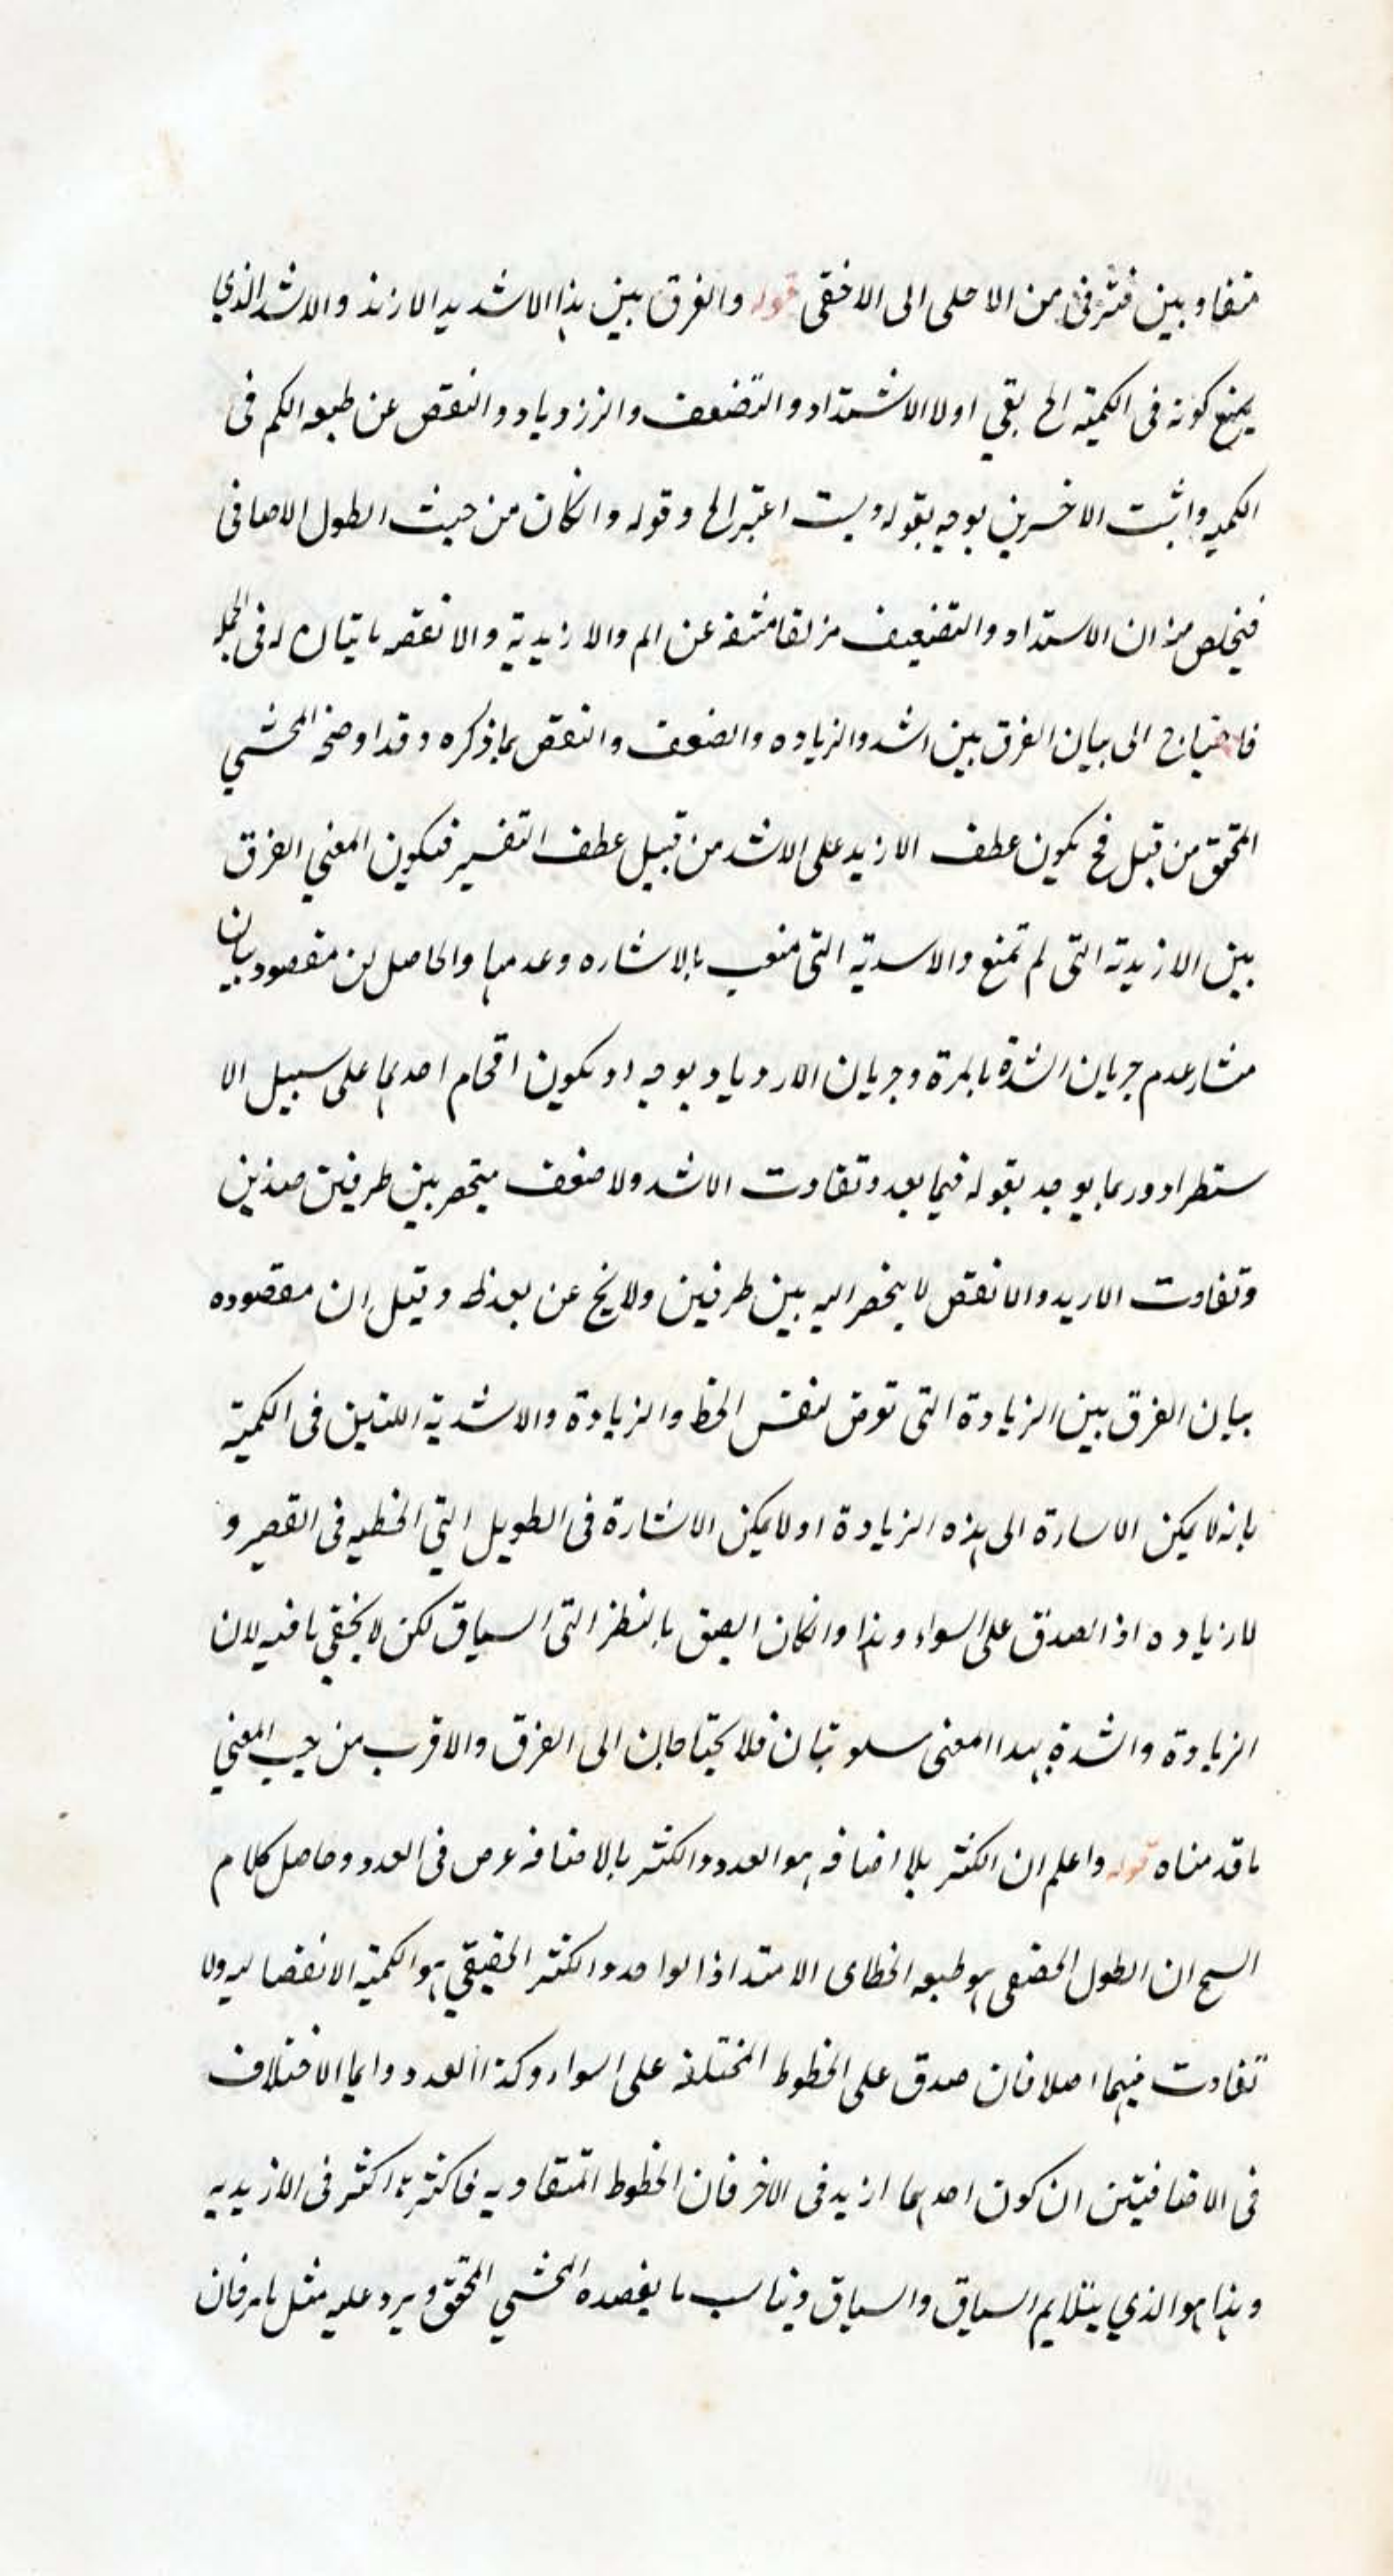 متفاوبين فترقى من الاحلى الى الاخفى قوله والفرق بين هذا الاشد يدا لازند والاشد الذي
يمنع كونه فى الكميته الخ بقي اولا الاشتداد والتضعف والزردياد والنقص عن طبعه الكم فى
الكميه واثبت الاخسرين بوجه بقوله وليست اعتبر الخ وقوله وانكان من حيث الطول الاضافى
فيتخلص منه ان الاستداد والتضعيف عن الم والازيدية والانقصه له فى الجمله
فاحتياج الى بيان الفرق بين اشد والزياده والضعف والنقص بما ذكره وقد اوضحه المحشي
المحقق من قبل فح يكون عطف الازيد على الاشد من قبيل عطف التفسير فيكون المعني الفرق
بين الازيدية التى لم تمنع والاسدية التى منعب بالاشاره وعدمها والحاصل ان مقصود بيان
منشار عدم جريان الشدة بالمرة وجريان الاردياد بوجه او يكون اقحام احدهما على سبيل الا
ستطراد وربما يوجد بقوله فيما بعد وتفاوت الاشد ولاضعف ينحصر بين طرفين ضدين
وتفاوت الاريد والانقص لا ينحصر اليه بين طرفين ولا يخ عن بعد وقيل ان مقصوده
بيان الفرق بين الزيادة التى توض لنفس الخط والزيادة والاشدية اللتين فى الكمية
بانه لا يمكن الاسارة الى هذه الزيادة اولا يمكن الاشارة فى الطويل التي الخطيه فى القصر و
لازياده اذ الصدق على السواء وهذا وانكان اليق بالنظر التى السياق لكن لا يخفي ما فيه لان
الزيادة والشدة بهدا المعنى سلوتبان فلا يحتاجان الى الفرق والاقرب من حيب المعني
ماقدمناه قوله واعلم ان الكثر بلا اضافه هو العدد والكثر بالاضافه عرص فى العدد وحاصل كلام
السح ان الطول الحصقى هو طبعه الخطاى الامتداذا لواحد والكثر الحقيقي هو الكميه الانفصاليه ولا
تفاوت فيهما اصلا فان صدق على الخطوط المختلفه على السواء وكذا العدد وانما الاختلاف
فى الاضافيتين ان كون احدهما ازيد فى الاخر فان الخطوط المتقاوبه فاكثرها اكثر فى الازيديه
وهذا هو الذي يتلايم السياق والسباق ويناسب ما يقصده المحشي المحقق ويرد عليه مثل مامر فان